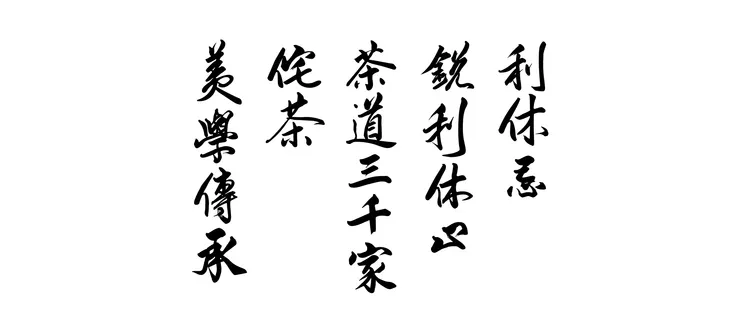 利休忌
鋭利休心
茶道三千家
侘茶
美學傳承